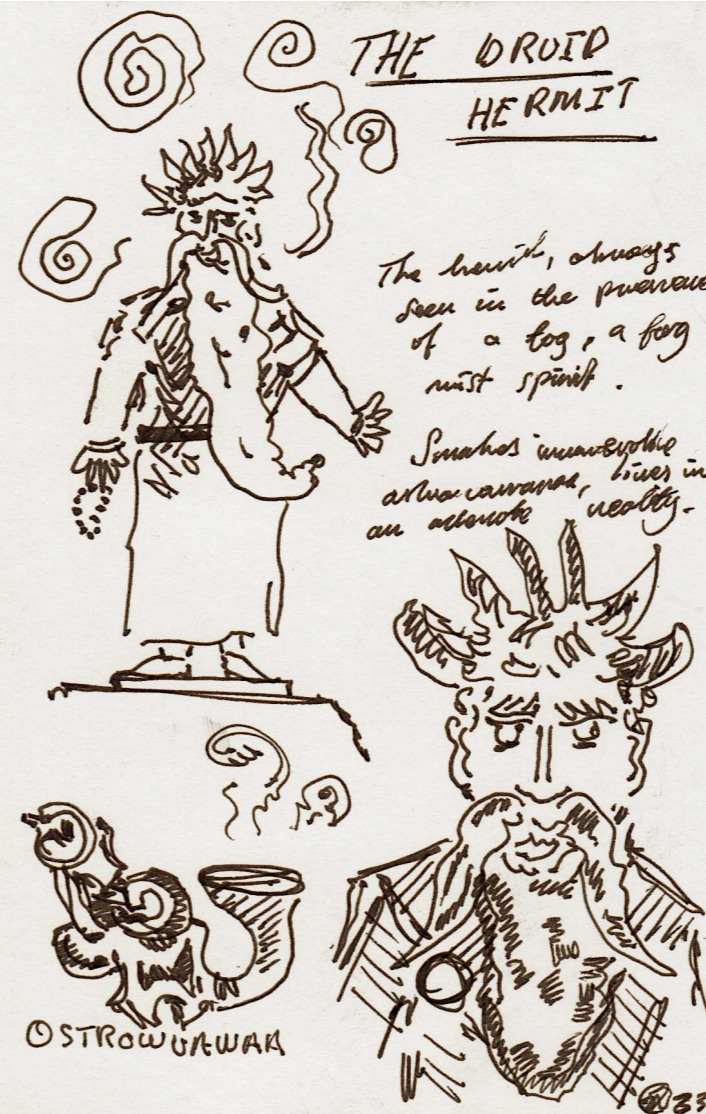 THE DRUID
HERMIT
The hermit, always
seen in the presence
of a fog, a fog
mist spirit.
Smokes
lives in
an reality.
33